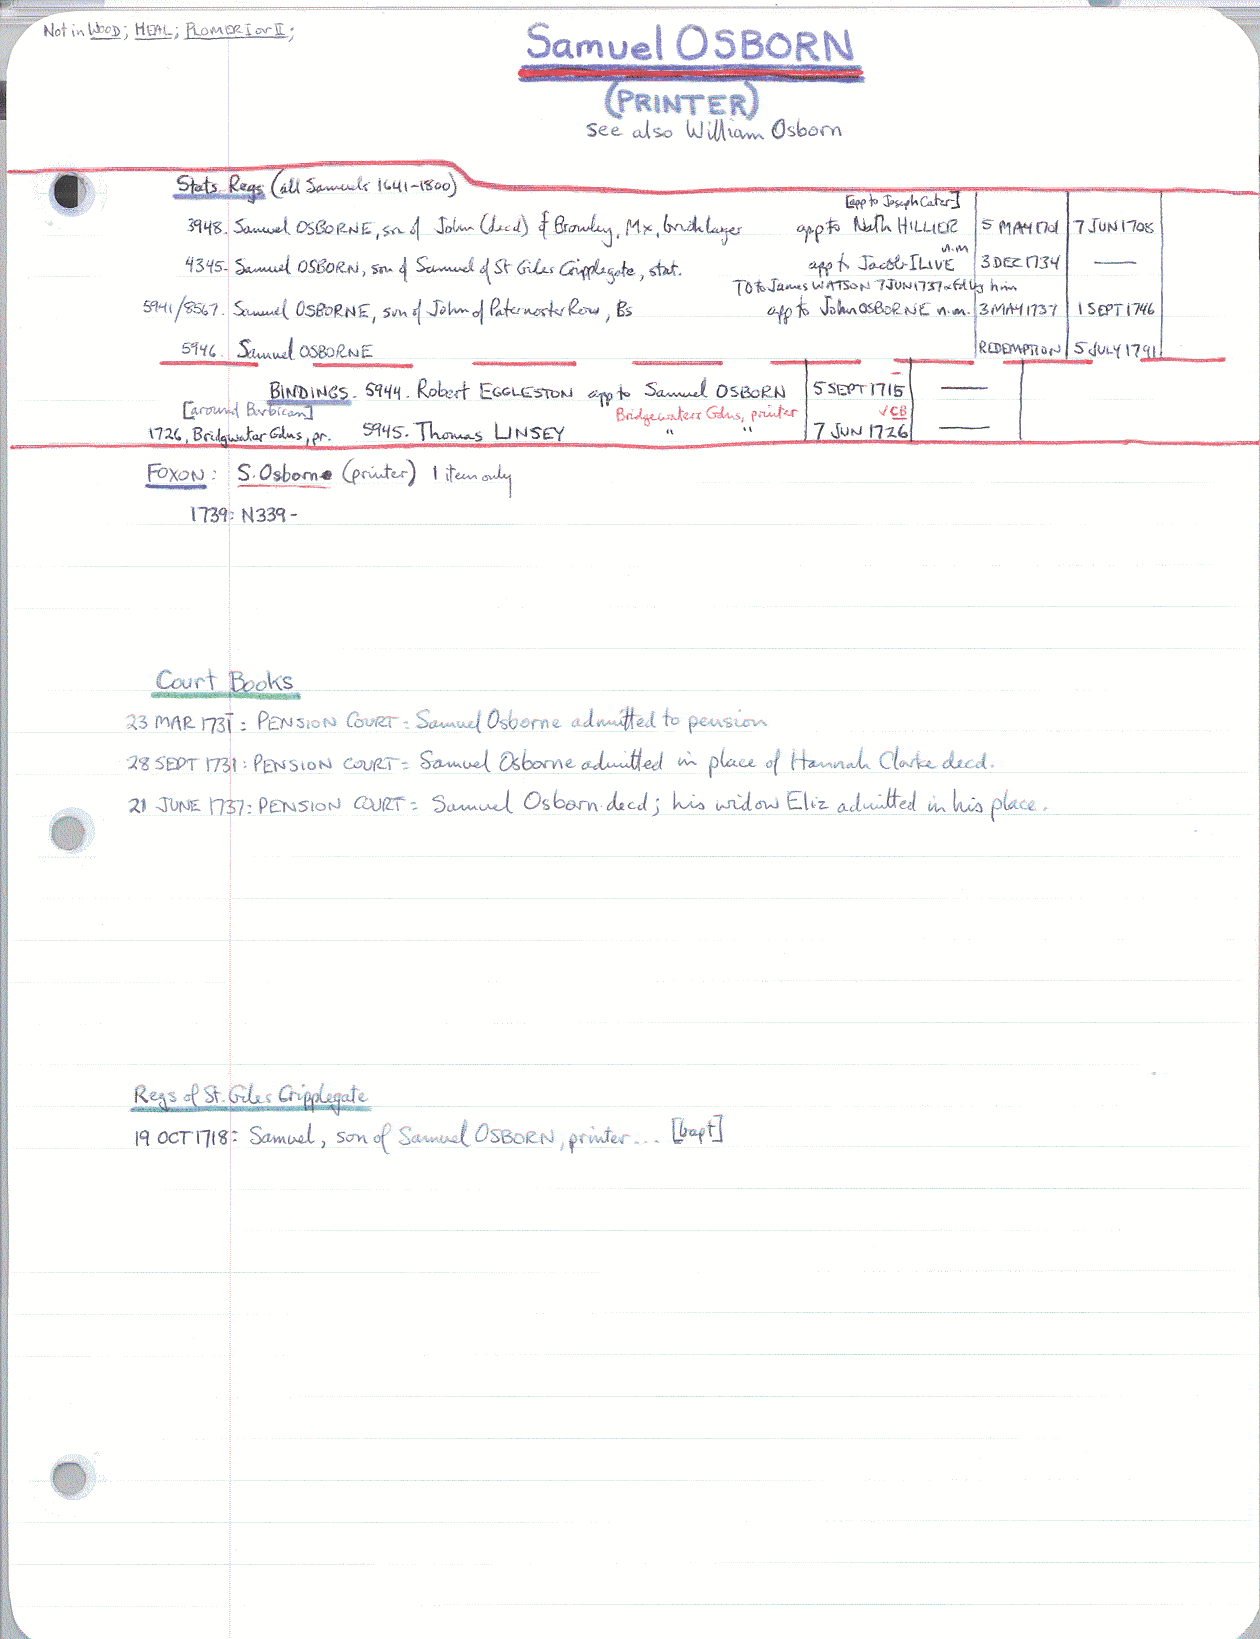 Not in WOOD; HEAL; PLOMER I or II;
Samuel OSBORN
(PRINTER)
see also William Osborn
Stats Regs (all Samuels 1641-1800)
[app to Joseph Cater]
3948. Samuel OSBORNE, son of John (decd) of Bromley, Mx, bricklayer app to Nath HILLIER 5 MAY 1701 7 JUN 1708
n.m
4345. Samuel OSBORN, son of Samuel of St Giles Cripplegate, stat. app to Jacob ILIVE 3 DEC 1734 —
TO to James WATSON 7 JUN 1737 & Fd by him
5941/8567. Samuel OSBORNE, son of John of Paternoster Row, Bs app to John OSBORNE n.m. 3 MAY 1737 1 SEPT 1746
5946. Samuel OSBORNE REDEMPTION 5 JULY 1791
BINDINGS. 5944. Robert EGGLESTON app to Samuel OSBORN 5 SEPT 1715 —
[around Barbican] Bridgewaters Gdns, printer √CB
1726, Bridgwater Gdns, pr. 5945. Thomas LINSEY " " 7 JUN 1726 —
FOXON: S. Osborne (printer) 1 item only
1739: N339-
Court Books
23 MAR 1731: PENSION COURT: Samuel Osborne admitted to pension
28 SEPT 1731: PENSION COURT: Samuel Osborne admitted in place of Hannah Clarke decd.
21 JUNE 1737: PENSION COURT: Samuel Osborn decd; his widow Eliz admitted in his place.
Regs of St. Giles Cripplegate
19 OCT 1718: Samuel, son of Samuel OSBORN, printer... [bapt]